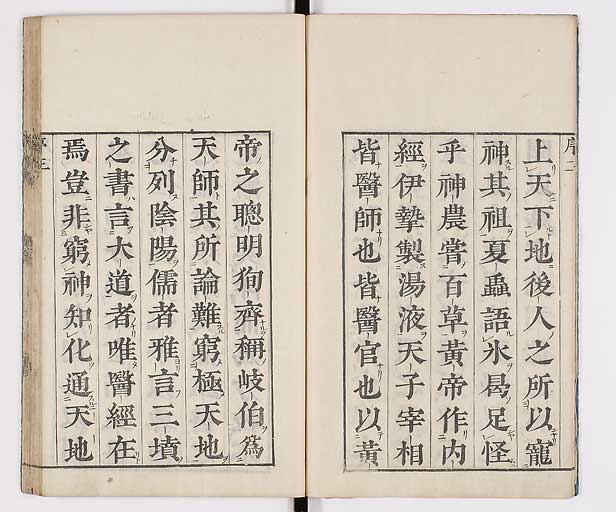 序二
上天下地後人之所以寵
神其祖夏蟲語氷曷足怪
乎神農嘗百草黄帝作内
經伊摯製湯液天子宰相
皆醫師也皆醫官也以黄
帝之聰明狥齊稱岐伯爲
天師其所論難窮極天地
分列陰陽儒者雅言三墳
之書言大道者唯醫經在
焉豈非窮神知化通天地
序三